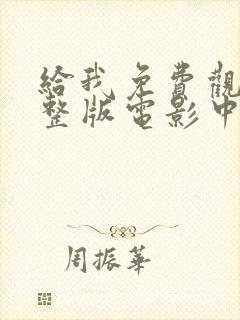 給我免費觀
整版電影中
周振華